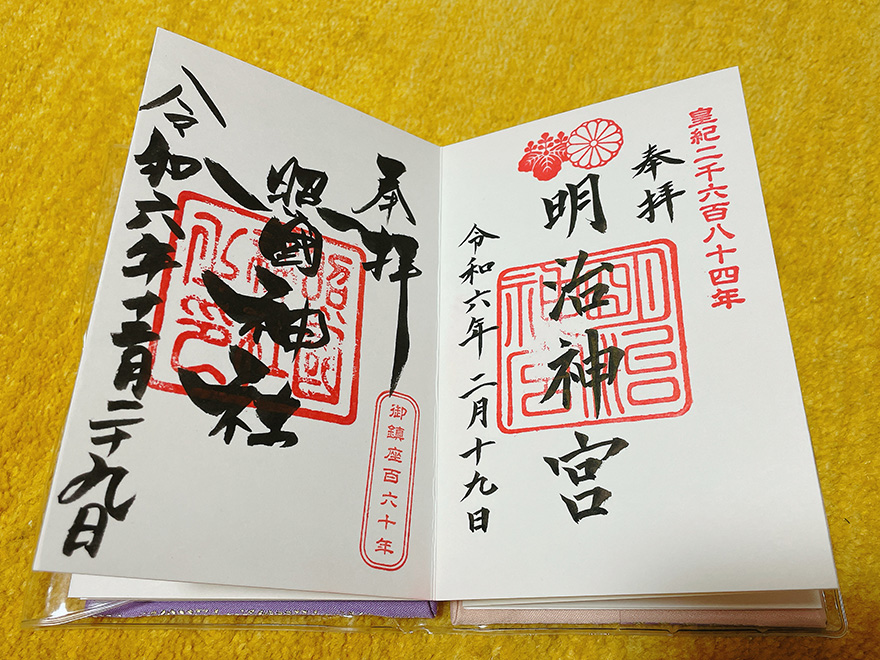 皇紀二千六百八十四年
奉拝
明治神宮
明治神宮
令和六年 二月十九日
奉拝
御鎮座百六十年
照國神社
令和六年十二月二十九日